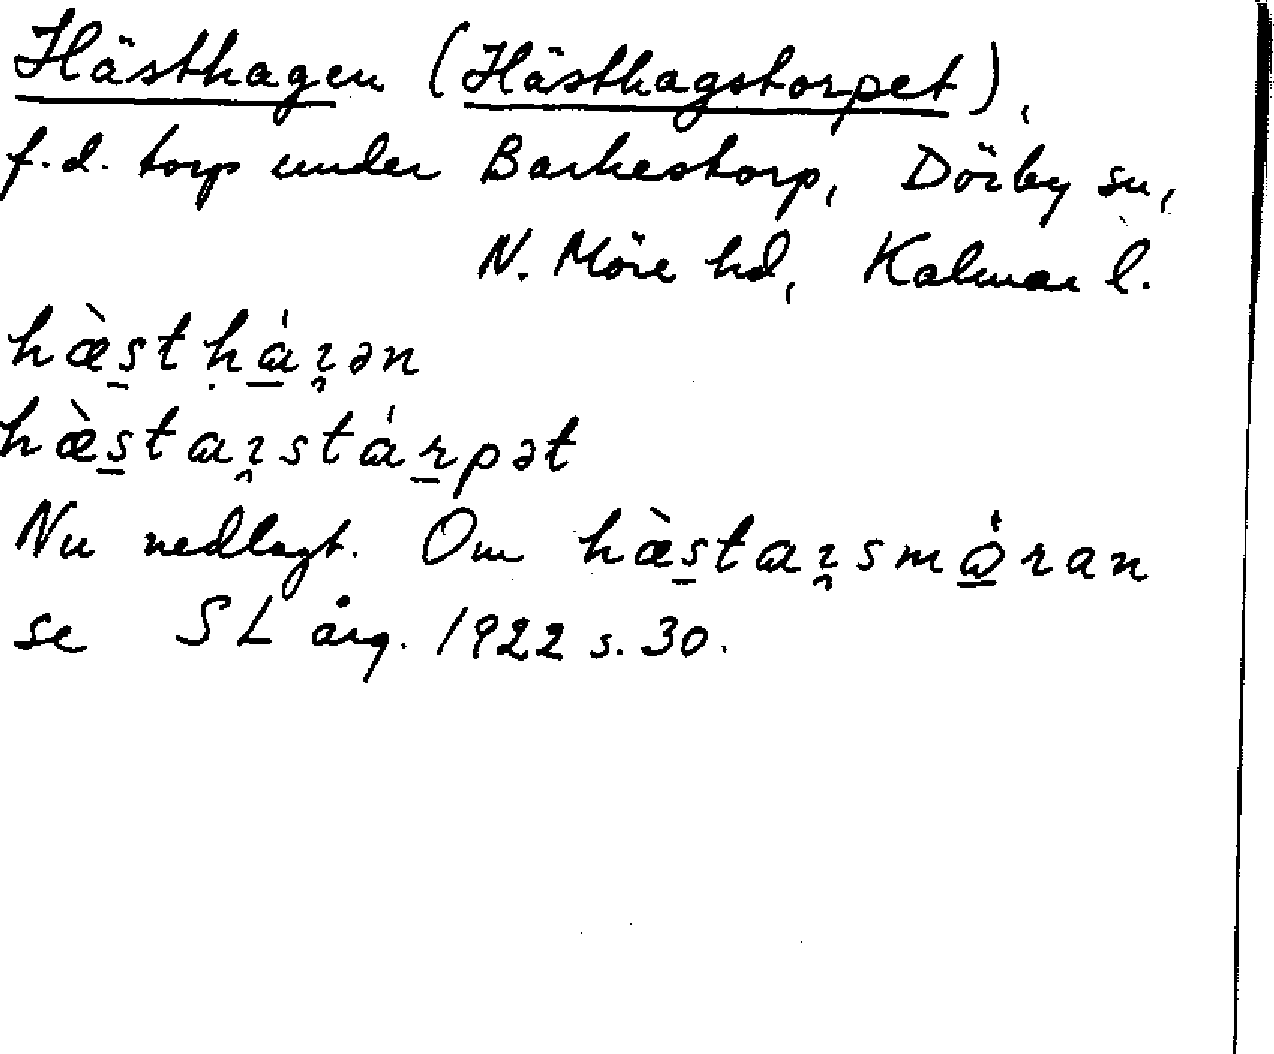 Hästhagen (Hästhagstorpet),
f.d. torp under Barkestorp, Dörby sn,
N. Möre hd, Kalmar l.
hæ̀s̠t ḥɑ̠́ɿ̯ən
hæ̀s̠taɿ̯stár̠pət
Nu nedlagt. Om hæ̀s̠taɿ̯smɷ̠́ran
se SL årg. 1922 s. 30.